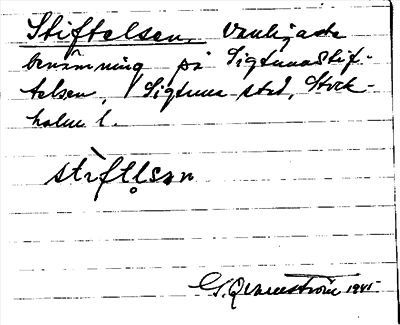 Stiftelsen. Vanligaste
benämning på Sigtunastif-
telsen, Sigtuna stad, Stock-
holms l.
stìftl̥sən
G. Qvarnström 1945